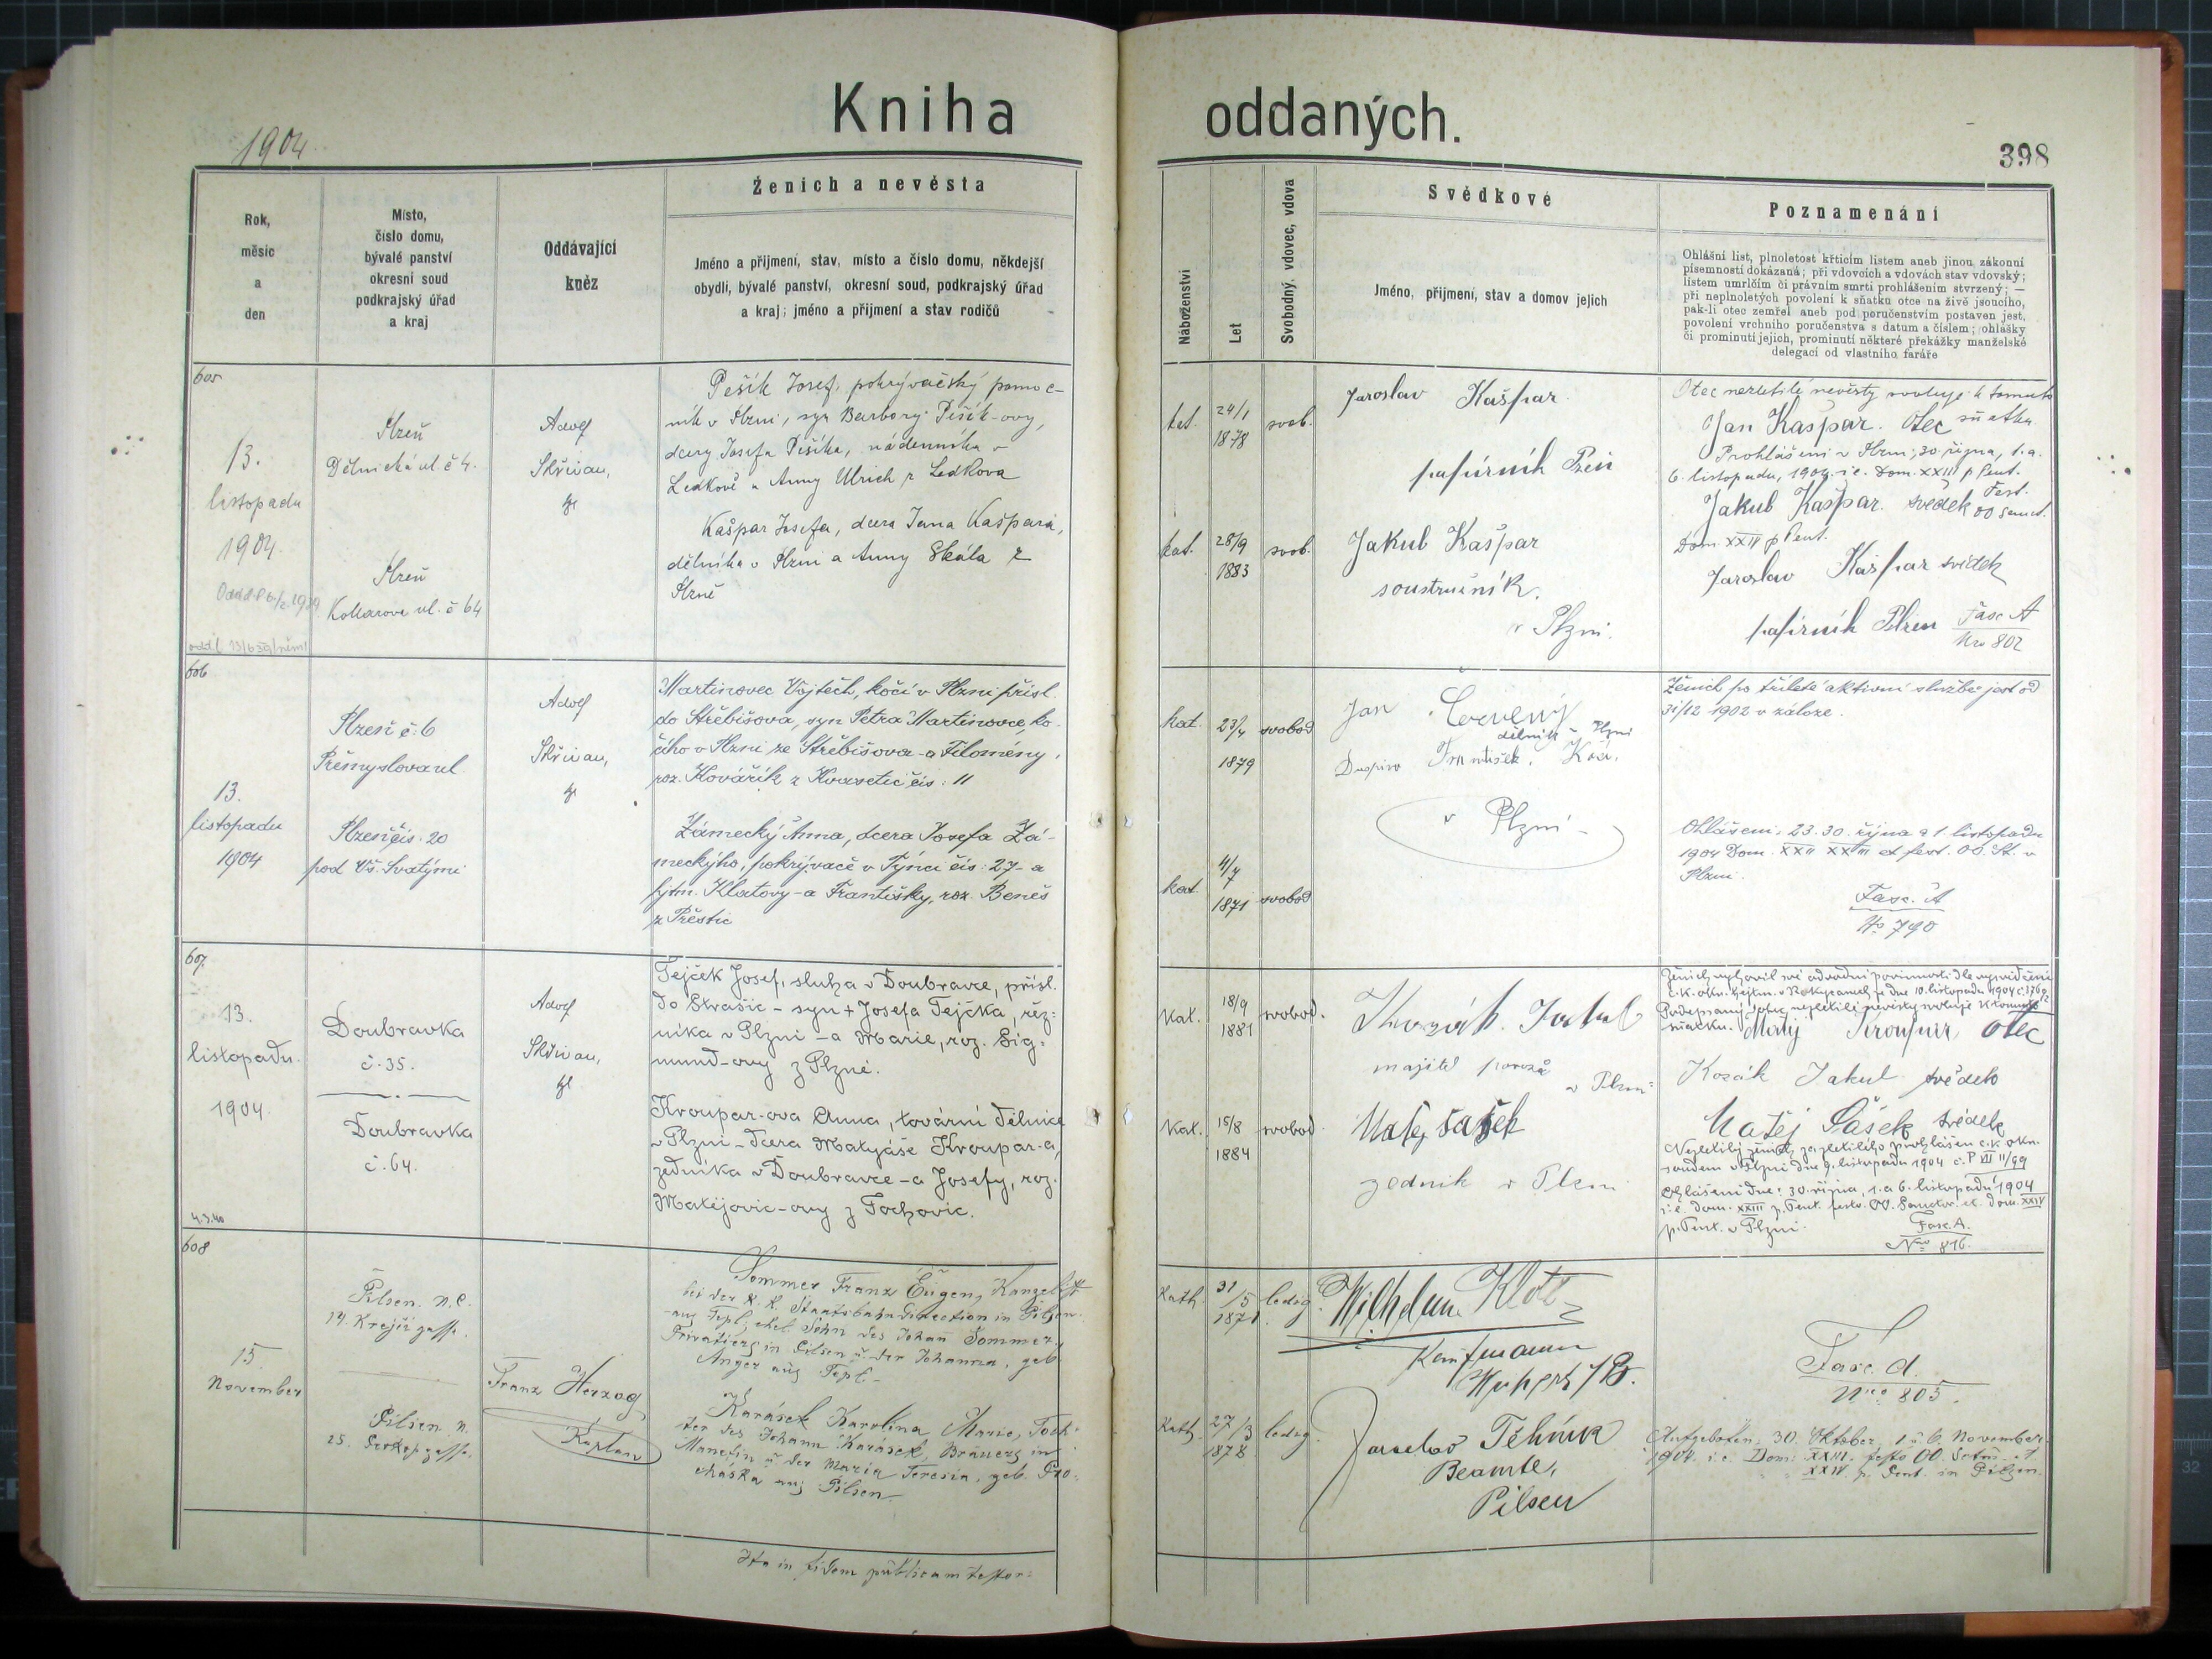 Kniha
oddaných.
1904
398
Rok,
měsíc
a
den
Místo,
číslo domu,
bývalé panství
okresní soud
podkrajský úřad
a kraj
Oddávající
kněz
Ženich a nevěsta
Jméno a příjmení, stav, místo a číslo domu, někdejší
obydlí, bývalé panství, okresní soud, podkrajský úřad
a kraj; jméno a příjmení a stav rodičů
Náboženství
Let
Svobodný, vdovec, vdova
Svědkové
Jméno, příjmení, stav a domov jejich
Poznamenání
Ohlášní list, plnoletost křticím listem aneb jinou zákonní
písemností dokázaná; při vdovcích a vdovách stav vdovský;
listem umrlčím či právním smrti prohlášením stvrzený; —
při neplnoletých povolení k sňatku otce na živě jsoucího,
pak-li otec zemřel aneb pod poručenstvím postaven jest,
povolení vrchního poručenstva s datum a číslem; ohlášky
či prominutí jejich, prominutí některé překážky manželské
delegací od vlastního faráře
605
13.
listopadu
1904
Plzeň
Dělnická ul č 4.
Plzeň
Kollarova ul. č 64
Adolf
Skřivan,
Pešík Josef, pokrývačský pomoc-
ník v Plzni, syn Barbory Pešík-ovy,
dcery Josefa Pešíka, nádenníka v
Ledkově a Anny Ulrich z Ledkova
Kašpar Josefa, dcera Jana Kašpara,
dělníka v Plzni a Anny Skála z
Plzně
kat.
24/1
1878
svob.
kat.
28/9
1883
svob.
Jaroslav Kašpar
papírník
Jakub Kašpar
soustružník
v Plzni.
Otec nezletilé nevěsty svoluje k tomuto
sňatku
Jan Kašpar. Otec
Prohlášeni v Plzni, 30. října, 1. a
6. listopadu, 1904 i. e. Dom. XXIII p Pent.
Fest.
OO Sanct.
Jakub Kašpar. svědek
Dom. XXIV p Pent.
Jaroslav Kašpar svědek
papírník Plzen
Fasc A
Nro 802
606
13.
listopadu
1904
Plzeň č. 6
Přemyslova ul.
Plzeň čís. 20
pod Vš. Svatými
Adolf
Skřivan,
Martinovec Vojtěch, kočí v Plzni přísl.
do Střebišova, syn Petra Martinovce, ko-
čího v Plzni ze Střebišova - a Filomény,
roz. Kovářík z Kvasetic čís: 11
Zámecký Anna, dcera Josefa Zá-
meckýho, pokrývače v Týnci čís: 27 - a
hjtm. Klatovy - a Františky, roz. Beneš
z Přeštic
kat.
23/4
1879
svobod
kat.
4/7
1871
svobod
Jan Červený
dělník Plzni
František.
v Plzni
Ženich po tříleté aktivní službě jest od
31/12 1902 v záloze.
Ohlášeni: 23. 30. října a 1. listopadu
1904 Dom. XXII XXIII et fest. OO. St. v
Plzni.
Fasc. A
No 790
607.
13.
listopadu
1904
4.3.40
Doubravka
č. 35.
Doubravka
č. 64.
Adolf
Skřivan,
Tejček Josef, sluha v Doubravce, přísl.
do Strašic - syn + Josefa Tejčka, řez-
níka v Plzni - a Marie, roz. Sig-
mund-ovy z Plzně.
Kroupar-ova Anna, tovární dělnice
v Plzni - dcera Matyáše Kroupar-a,
zedníka v Doubravce - a Josefy, roz.
Matějovic-ovy z Tochovic.
Kat.
18/9
1881
svobod.
Kat.
15/8
1884
svobod.
Kozák Jakub
majitel povozů
v Plzni
Matěj Šašek
zedník v Plzni
Ženich vyhověl své odvodní povinnosti dle vysvědčení
c. k. okr. hejtm. v Rokycanech ze dne 10. listopadu 1904
Podepsaný otec nezletilé nevěsty svoluje k tomuto
sňatku. otec
Kozák Jakub svědek
Matěj Šašek svědek
Nezletilý ženich za zletilého prohlášen c. k. okr.
soudem v Plzni dne 9. listopadu 1904 č. P VII 11/99
Ohlášeni dne: 30. října, 1. a 6. listopadu 1904
i. e. dom. XXIII p. Pent. festo OO. Sanctor. et dom. XXIV
p. Pent. v Plzni.
Fasc. A.
Nro 816.
608
15.
November
Pilsen. N. C.
14. Krejčigasse.
Pilsen. N.
25. Prokopgasse.
Franz Herzog
Kaplan
Sommer Franz Eugen, Kanzelist
bei der K. K. Staatsbahn-Direction in Pilsen
aus Tepl, ehel. Sohn des Johann Sommer,
Privatiers in Pilsen u. der Johanna, geb.
Anger aus Tepl.
Karásek Karolina Marie, Toch-
ter des Johann Karásek, Bräuers in
Manetin u. der Maria Teresia, geb. Pro-
cháska aus Pilsen
Kath.
31/5
1871
ledig.
Kath.
27/3
1878
ledig.
Wilhelm Klotz
Kaufmann
Beamte,
Pilsen
Fasc. A.
Nro 805.
Aufgeboten: 30. Oktober, 1 u 6. November
1904. i. e. Dom: XXIII. festo OO. Sctm. et
XXIV. p. Pent. in Pilsen.
Ita in fidem publicam testor: